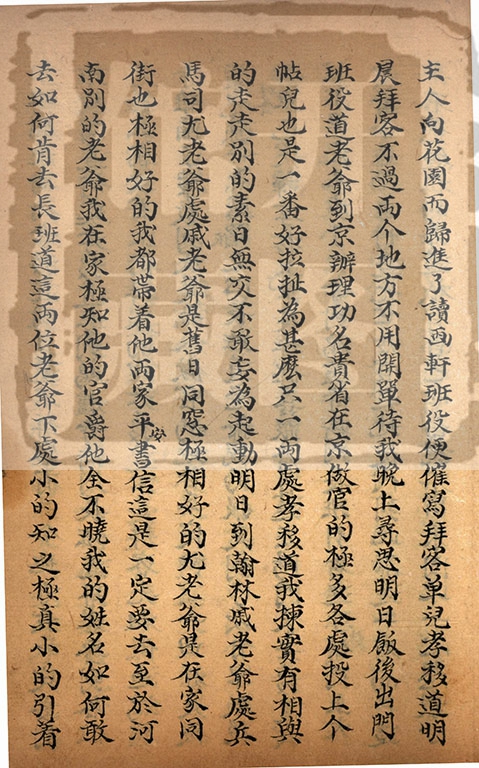 主人向花園而歸進了讀画軒班役便催寫拜客单兒孝移道明
晨拜客不過両个地方不用開單待我晚上尋思明日飯後出門
班役道老爺到京辦理功名貴省在京做官的極多各處投上个
帖兒也是一番好拉扯為甚麽只一両處孝移道我揀實有相與
的走走別的素日無交不敢妄為起動明日到翰林戚老爺處兵
馬司尤老爺處戚老爺是舊日同窓極相好的尤老爺是在家同
街也極相好的我都帶着他両家平安書信這是一定要去至於河
南別的老爺我在家極知他的官爵他全不曉我的姓名如何敢
去如何肯去長班道這両位老爺下處小的知之極真小的引着